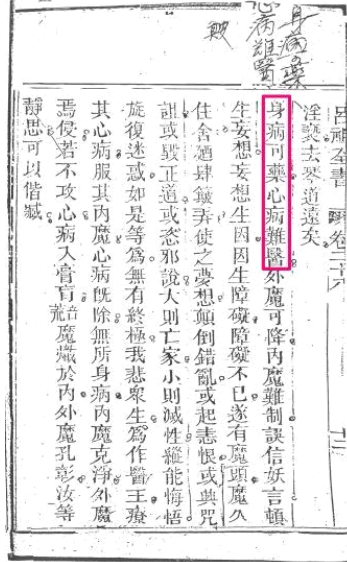 身病藥
心病難醫
皴
呂祖全書 卷二十八
淫褻去眾道遠矣
身病可藥心病難醫外魔可降內魔難制誤信妖言頓
生妄想妄想生因因生障礙障礙不已遂有魔頭魔久
住舍廼肆簸弄使之夢想顛倒錯亂或起恚恨或興咒
詛或毀正道或恣邪說大則亡家小則滅性縱能悔悟
旋復迷惑如是等為無有終極我悲眾生為作醫王療
其心病服其內魔心病既除無所身病內魔克淨外魔
焉侵若不攻心病入膏肓音荒魔熾於內外魔孔彰汝等
靜思可以偕臧